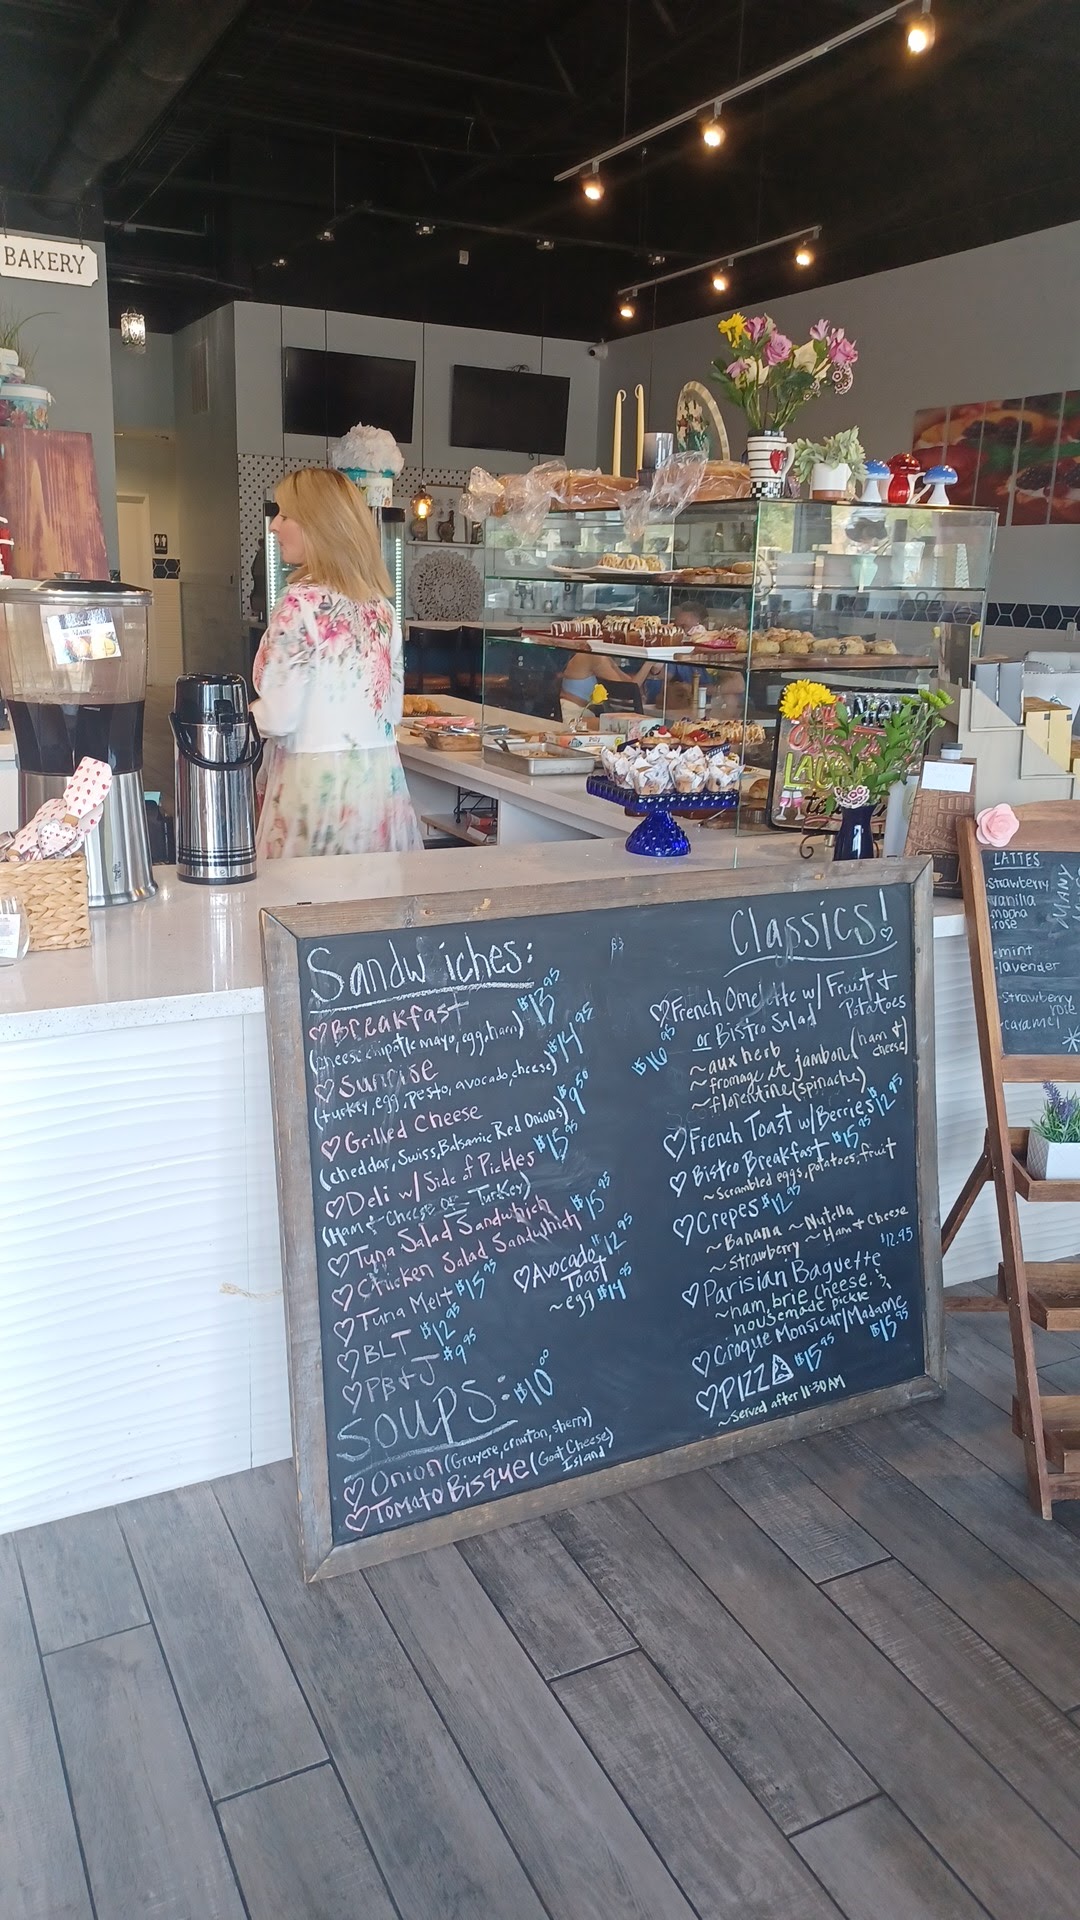 BAKERY
Sandwiches:
♡Breakfast $13.95
(cheese, chipotle mayo, egg, ham)
♡Sunrise $14.95
(turkey, egg, pesto, avocado, cheese)
♡Grilled Cheese $9.50
(cheddar, Swiss, Balsamic Red Onions)
♡Deli w/ Side of Pickles $15.95
(Ham & Cheese or Turkey)
♡Tuna Salad Sandwhich
♡Chicken Salad Sandwhich $15.95
♡Tuna Melt $15.95
♡BLT $12.95
♡PB&J $9.95
♡Avocado Toast $12.95
~egg $14.95
Soups: $10.00
♡Onion (Gruyere, crouton, sherry)
♡Tomato Bisque (Goat Cheese
Island)
Classics!
♡French Omelette w/ Fruit &
Potatoes
or Bistro Salad $16.95
~aux herb
~fromage et jambon (ham &
cheese)
~florentine (spinache)
♡French Toast w/ Berries $12.95
♡Bistro Breakfast $15.95
~Scrambled eggs, potatoes, fruit
♡Crepes $12.95
~Banana ~Nutella
~Strawberry ~Ham & Cheese
♡Parisian Baguette $12.95
~ham, brie cheese,
housemade pickle
♡Croque Monsieur/Madame
$15.95
♡PIZZA $15.95
~Served after 11:30 AM
LATTES
-strawberry
-vanilla
-mocha
-rose
-mint
-lavender
-strawberry
rose
-caramel
MANY